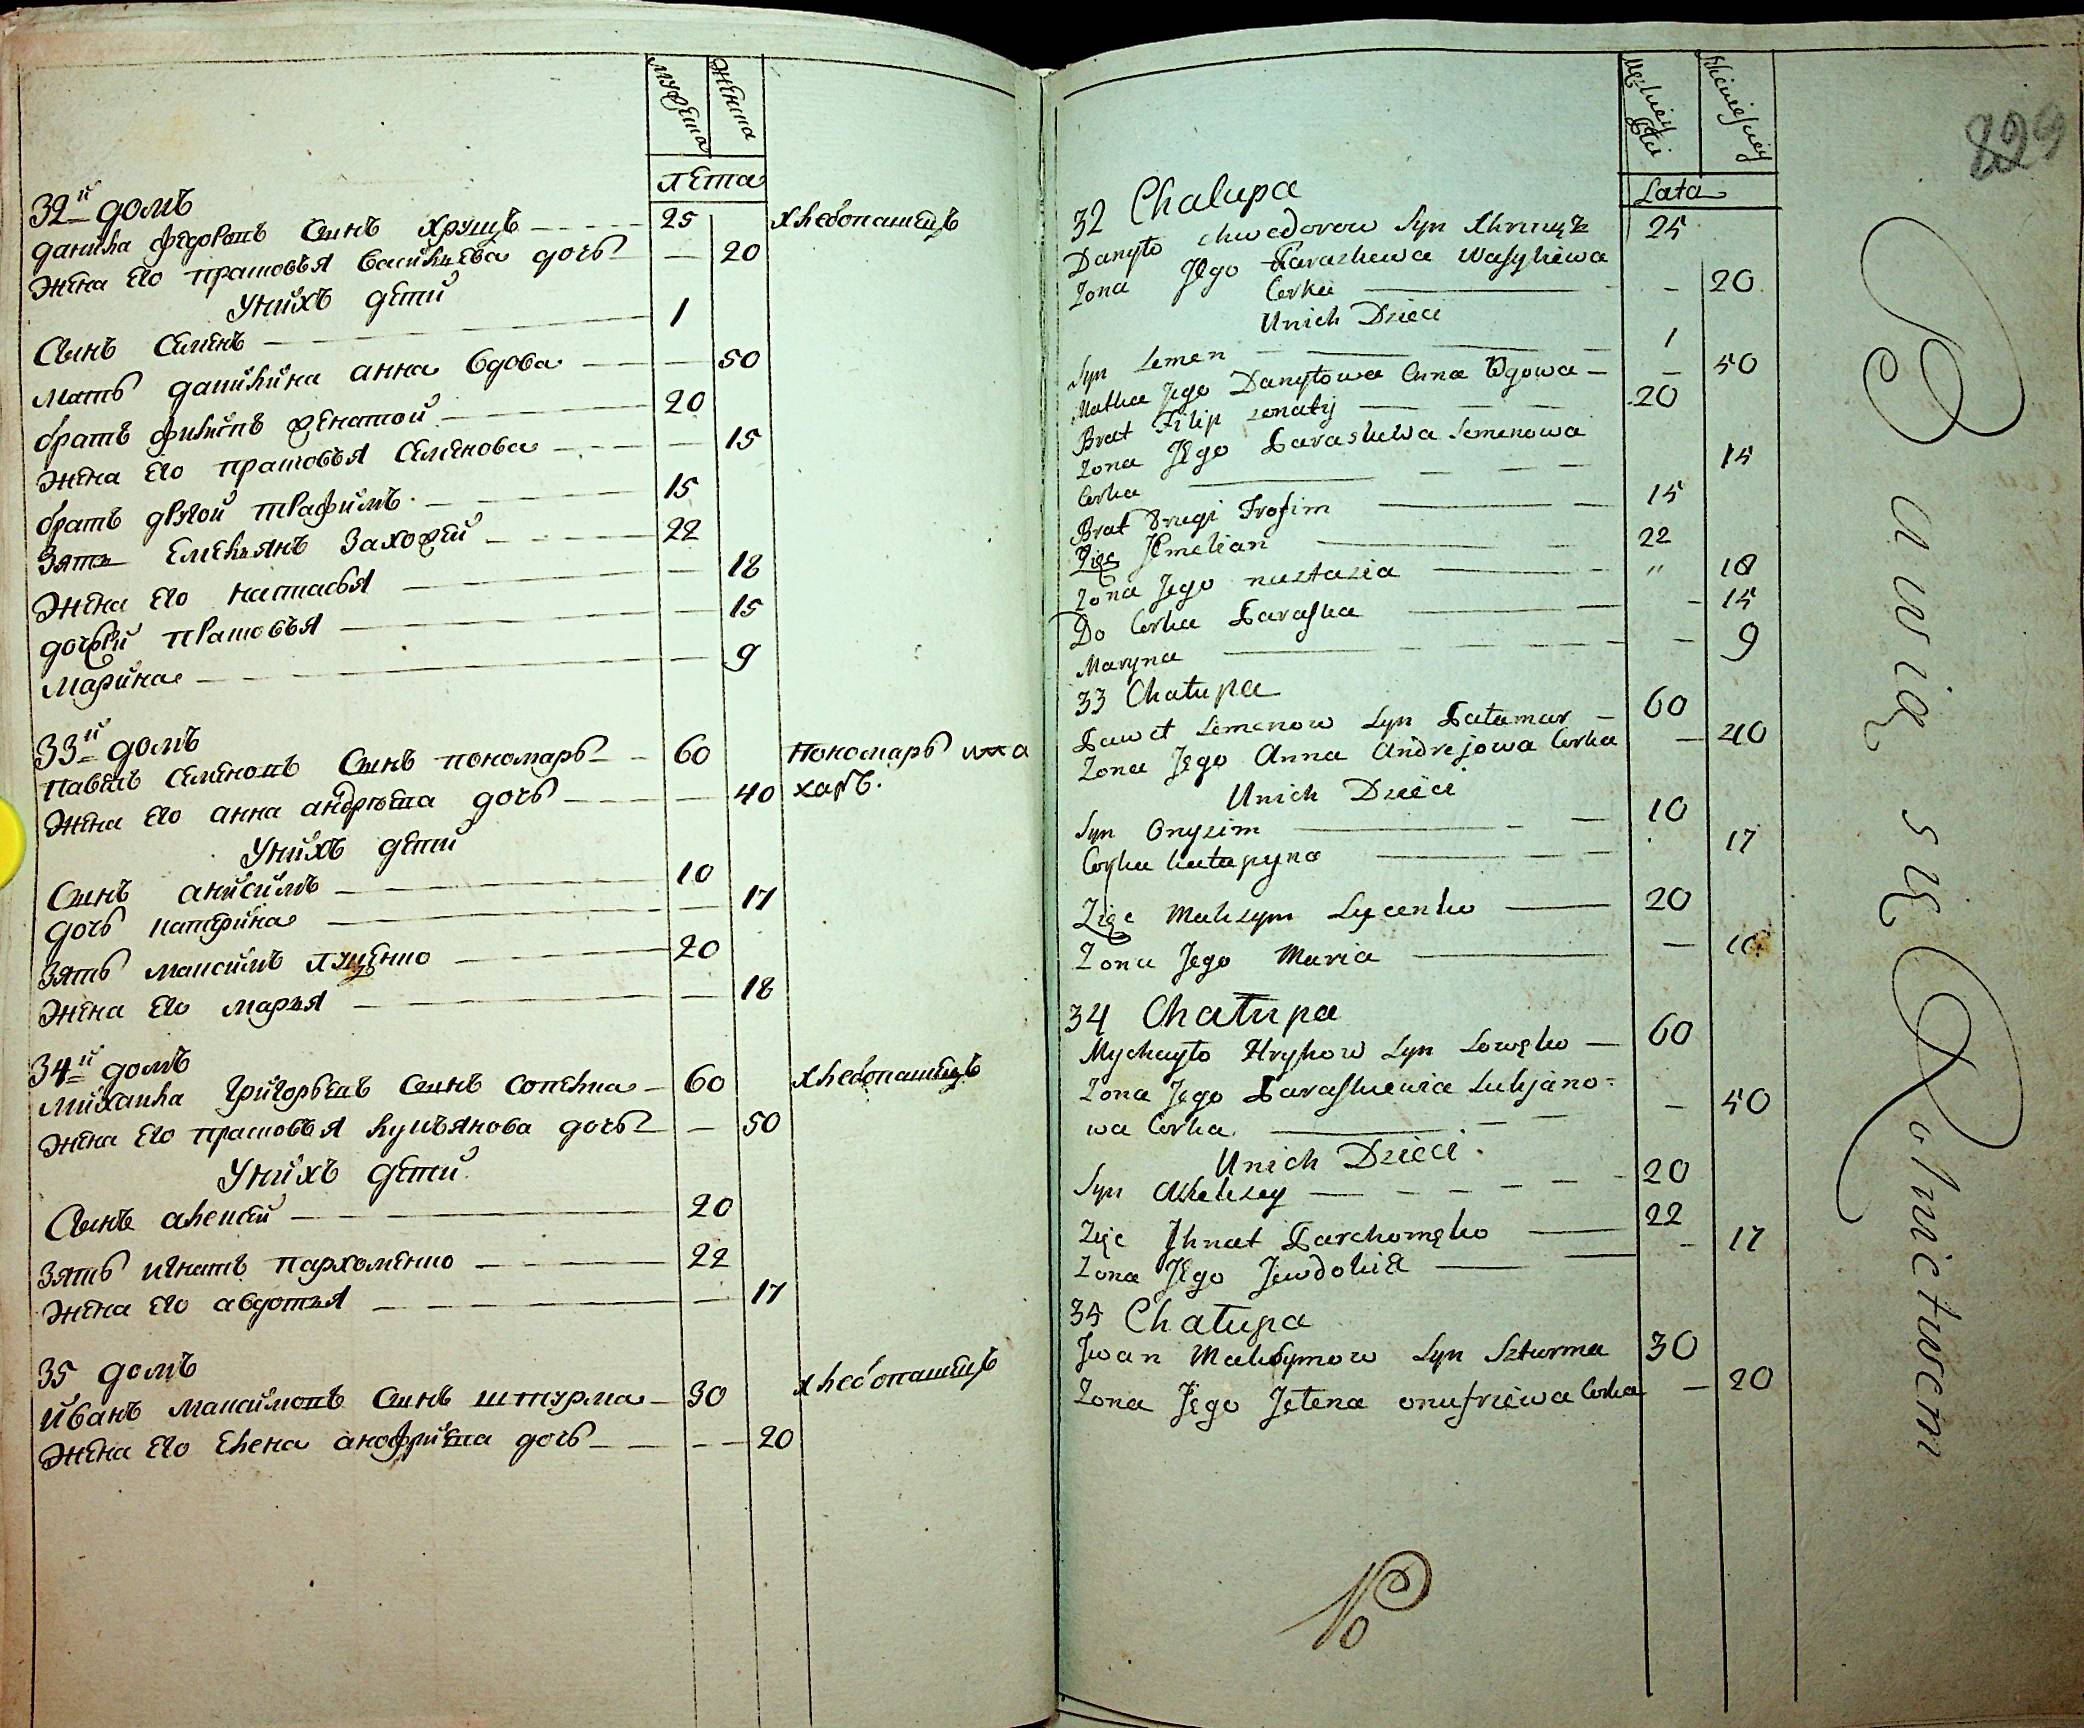 мужеска
женска
лета
32й домъ
данила федоровъ синъ хрущъ 25 хлебопашецъ
жена его прасковья василиева дочь 20
У нихъ дети
Синъ Семенъ 1
мать данилина анна вдова 50
братъ филипъ женатой 20
жена его прасковья Семенова 15
братъ другой трафимъ 15
Зять Емельянъ Захожей 22
жена его настасья 18
дочери прасковья 15
марина 9
33й домъ
павелъ Семеновъ Синъ пономарь 60 пономарь
жена его анна андреева дочь 40 харъ.
У нихъ дети
Синъ анисимъ 10
дочь катерина 17
Зять максимъ луценко 20
жена его марья 18
34й домъ
михаила григорьевъ синъ 60 хлебопашецъ
жена его прасковья лукъянова дочь 50
У нихъ дети
Синъ алексей 20
Зять игнатъ пархоменко 22
жена его авдотья 17
35 домъ
иванъ максимовъ Синъ штурма 30 хлебопашецъ
жена его елена анофриева дочь 20
829
Męskiey Płci
Żeńskiey
Lata
32 Chalupa
Danyło chwedorow Syn Chruszcz 25
Zona Jego Paraskewa Wasyliewa
Corka 20
Unich Dzieci
Syn Semen 1
Matka Jego Danyłowa Anna Wdowa 50
Brat Filip zonaty 20
Zona Jego Paraskewa Semenowa
Corka 15
Brat Drugi Trofim 15
Zięc Jemelian 22
Zona Jego nastazia " 18
Do Corka Paraska 15
Maryna 9
33 Chatupa
Paweł Semenow Syn Pałamar 60
Zona Jego Anna Andrejowa Corka 40
Unich Dzieci
Syn Onyzim 10
Corka Kataryna 17
Zięc Maksym Łucenko 20
Zona Jego Maria
34 Chatupa
Mychayło Hryhow Syn 60
Zona Jego Paraskiewia Lukjano=
wa Corka 50
Unich Dzieci
Syn Ałeksey 20
Zięc Jhnat Parchomęko 22
Zona Jego Jewdokia 17
35 Chatupa
Jwan Maksymow Syn Szturma 30
Zona Jego Jełena onufriewa Corka 20
Bawią się Rolnictwem